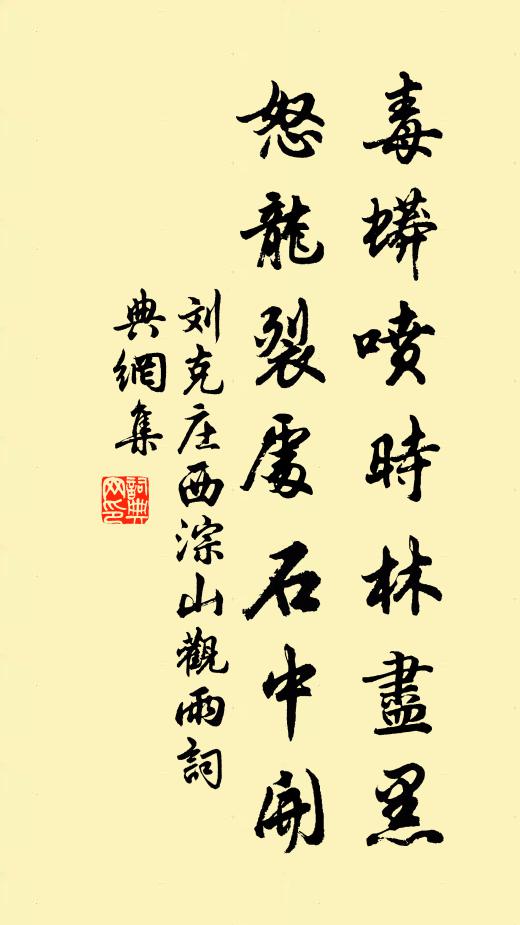 毒蟒噴時林盡黑
怒龍裂處石中開
刘克庄西淙山觀雨詞
典網集
詞典
网印